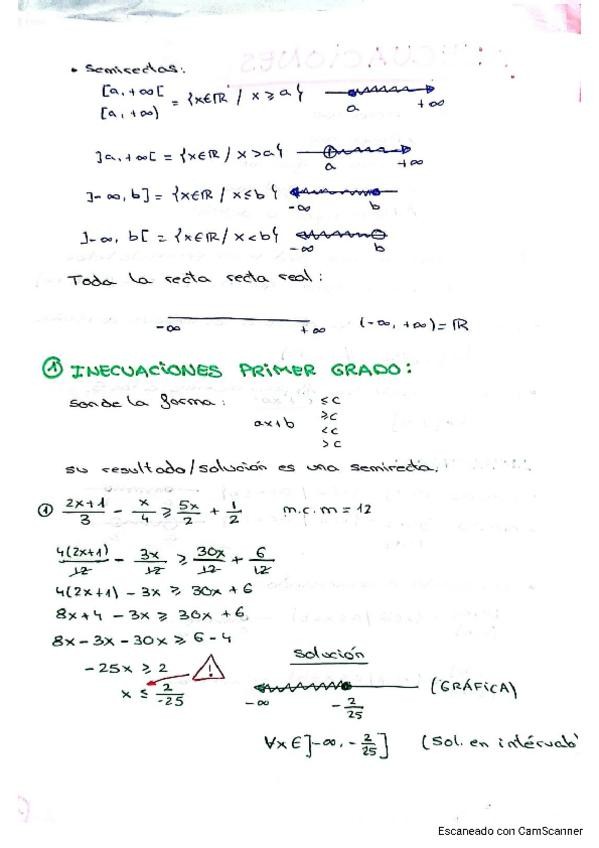 • Semirectas:
[a, +∞[
[a, +∞) = {x∈ℝ / x ≥ a}
a +∞
]a, +∞[ = {x∈ℝ / x > a}
a +∞
]-∞, b] = {x∈ℝ / x ≤ b}
-∞ b
]-∞, b[ = {x∈ℝ / x < b}
-∞ b
Toda la recta recta real:
-∞ +∞ (-∞, +∞) = ℝ
① INECUACIONES PRIMER GRADO:
son de la forma: ≤ c
ax+b ≥ c
< c
> c
su resultado/solución es una semirecta.
① (2x+1)/3 - x/4 ≥ 5x/2 + 1/2 m.c.m = 12
4(2x+1)/12 - 3x/12 ≥ 30x/12 + 6/12
4(2x+1) - 3x ≥ 30x + 6
8x + 4 - 3x ≥ 30x + 6
8x - 3x - 30x ≥ 6 - 4
solución
-25x ≥ 2 !
x ≤ 2/-25
-∞ -2/25 (GRÁFICA)
∀x∈]-∞, -2/25] (Sol. en intérvalo)
Escaneado con CamScanner